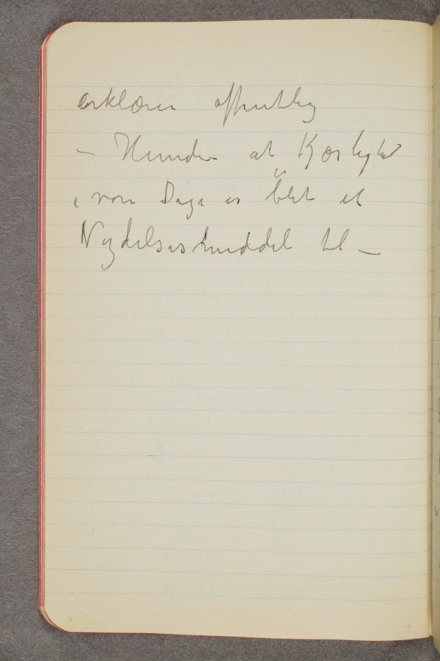 erklærer offentlig
– Kvinder at Kærlighed
i vore Dage er blet et
Nydelsesmiddel til –